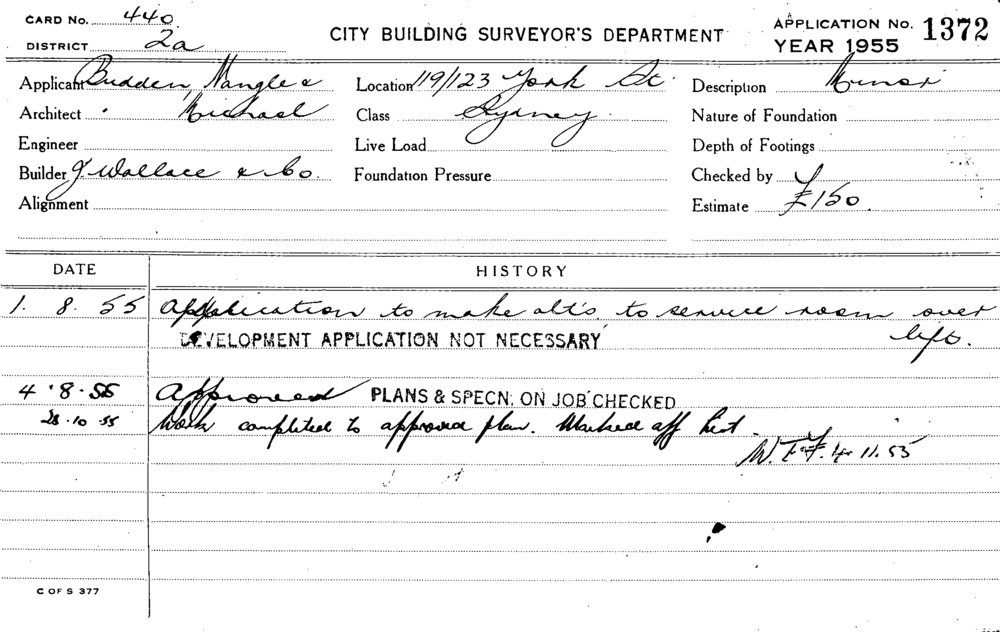 CARD No. 440
DISTRICT 2a
CITY BUILDING SURVEYOR'S DEPARTMENT
APPLICATION No. 1372
YEAR 1955
Applicant Budden, Nangle &
Architect Michael
Engineer
Builder J Wallace & Co.
Alignment
Location 119/123 York St
Class Sydney
Live Load
Foundation Pressure
Description Minor
Nature of Foundation
Depth of Footings
Checked by
Estimate £150.
DATE HISTORY
1. 8. 55 Application to make alt's to service room over
DEVELOPMENT APPLICATION NOT NECESSARY lift.
4 . 8 . 55 Approved PLANS & SPECN. ON JOB CHECKED
28 . 10 . 55 Work completed to approved plan. Marked off list.
W.F.F. 4. 11. 55
C OF S 377